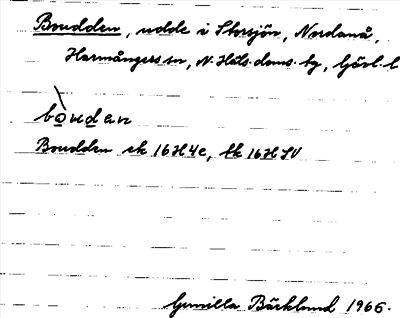 Boudden, udde i Storsjön, Nordanå,
Harmångers sn, N. Häls. doms. tg, Gävl. l
bòudan
Boudden ek 16H4e, tk 16H SV
Gunilla Bäcklund 1966.